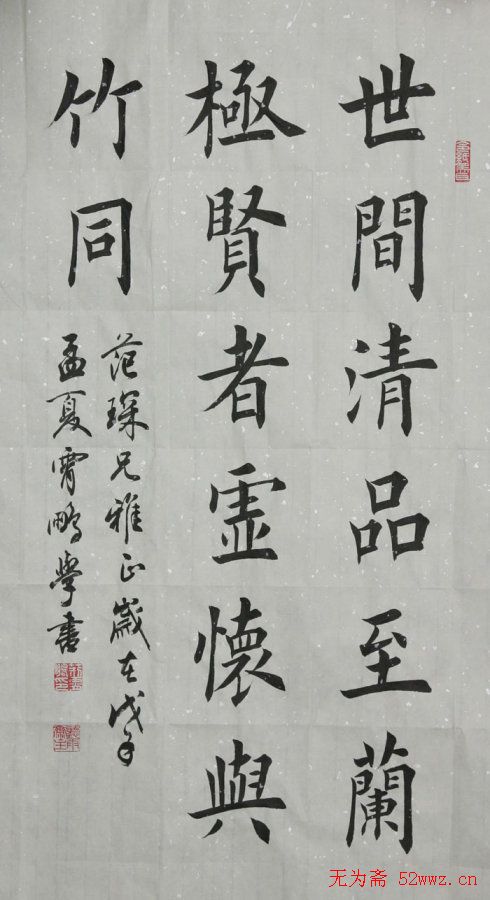 世間清品至蘭
極賢者虛懷與
竹同
范琛兄雅正歲在戊子
孟夏霄鵬學書
无为斋 52wwz.cn